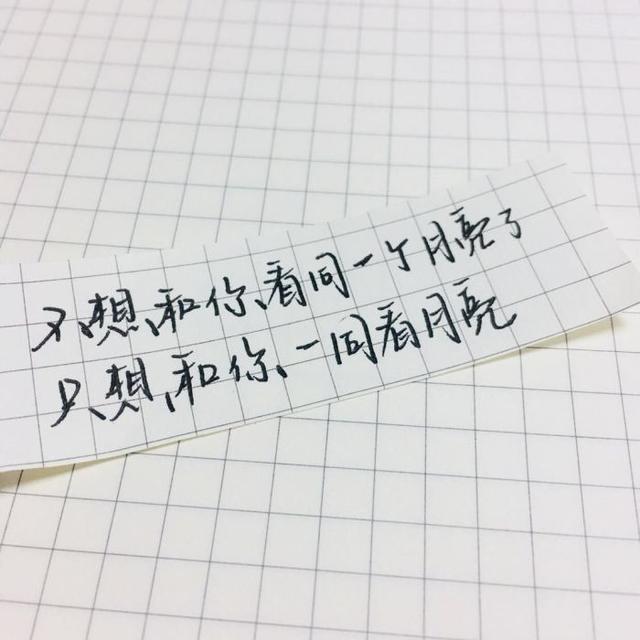 不想和你看同一个月亮了
只想和你一同看月亮